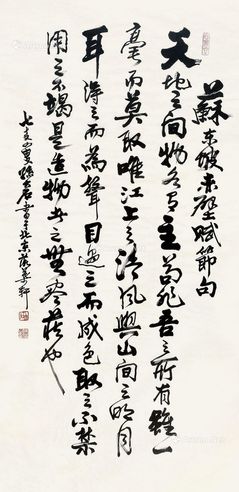 蘇东坡赤壁賦節句
天地之间物各有主苟非吾之所有雖一
毫而莫取唯江上之清风與山间之明月
耳得之而為聲目遇之而成色取之不禁
用之不竭是造物者之無尽藏也
叟 書 北京 軒